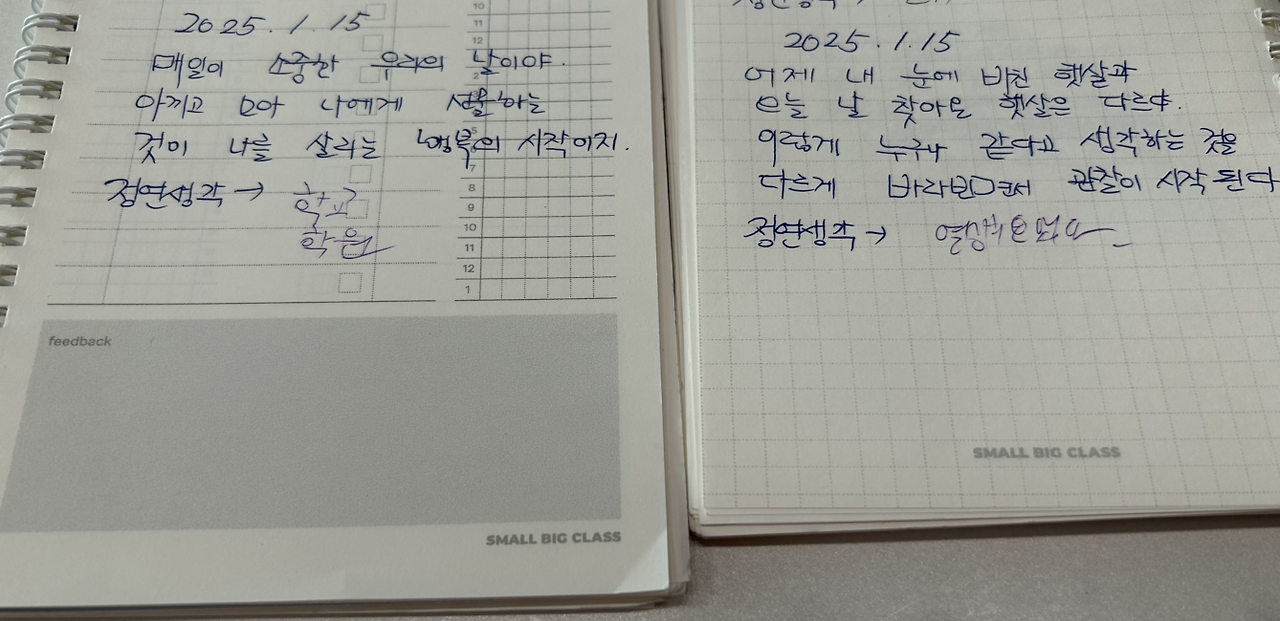 2025.1.15
매일이 소중한 우리의 날이야.
아끼고 모아 나에게 선물하는
것이 나를 살리는 행복의 시작이지.
정연생각 → 학교
학원
10
11
12
7
8
9
10
11
12
1
feedback
SMALL BIG CLASS
2025.1.15
어제 내 눈에 비친 햇살과
오늘 날 찾아온 햇살은 다르다.
이렇게 누구나 같다고 생각하는 것을
다르게 바라보면서 관찰이 시작된다
정연생각 →
SMALL BIG CLASS